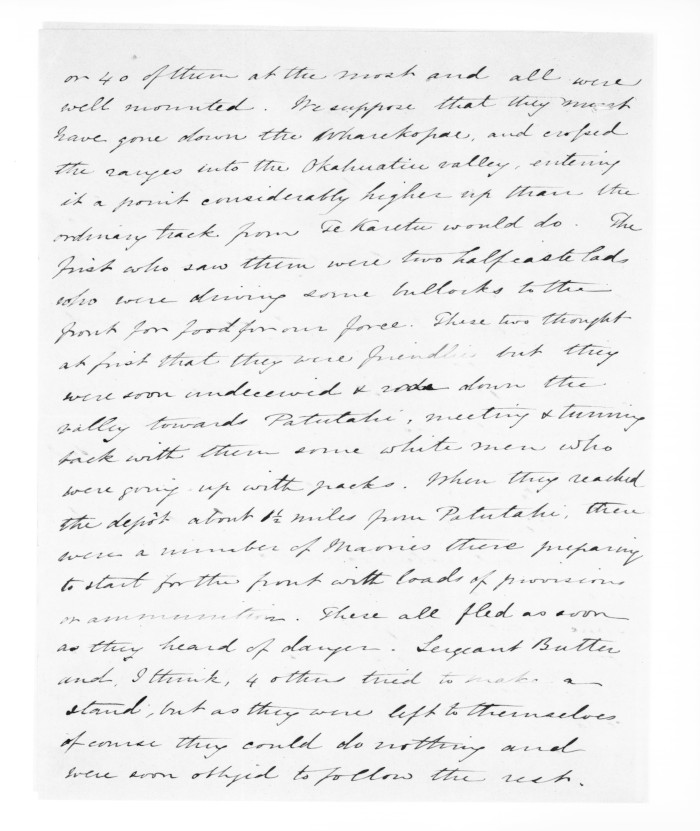 or 40 of them at the most and all were
well mounted. We suppose that they must
have gone down the Wharekopae, and crossed
the ranges into the Okahuatiu valley, entering
it a point considerably higher up than the
ordinary track from Te Karetu would do. The
first who saw them were two half caste lads
who were driving some bullocks to the
front for food for our force. These two thought
at first that they were friendlies but they
were soon undeceivid & rode down the
valley towards Patutahi, meeting & turning
back with them some white men who
were going up with packs. When they reached
the depôt about 1½ miles from Patutahi, there
were a number of Maories there preparing
to start for the front with loads of provisions
or ammunition. These all fled as soon
as they heard of danger. Sergeant Butter
and, I think, 4 others tried to make a
stand, but as they were left to themselves
of course they could do nothing and
were soon obligid to follow the rest.